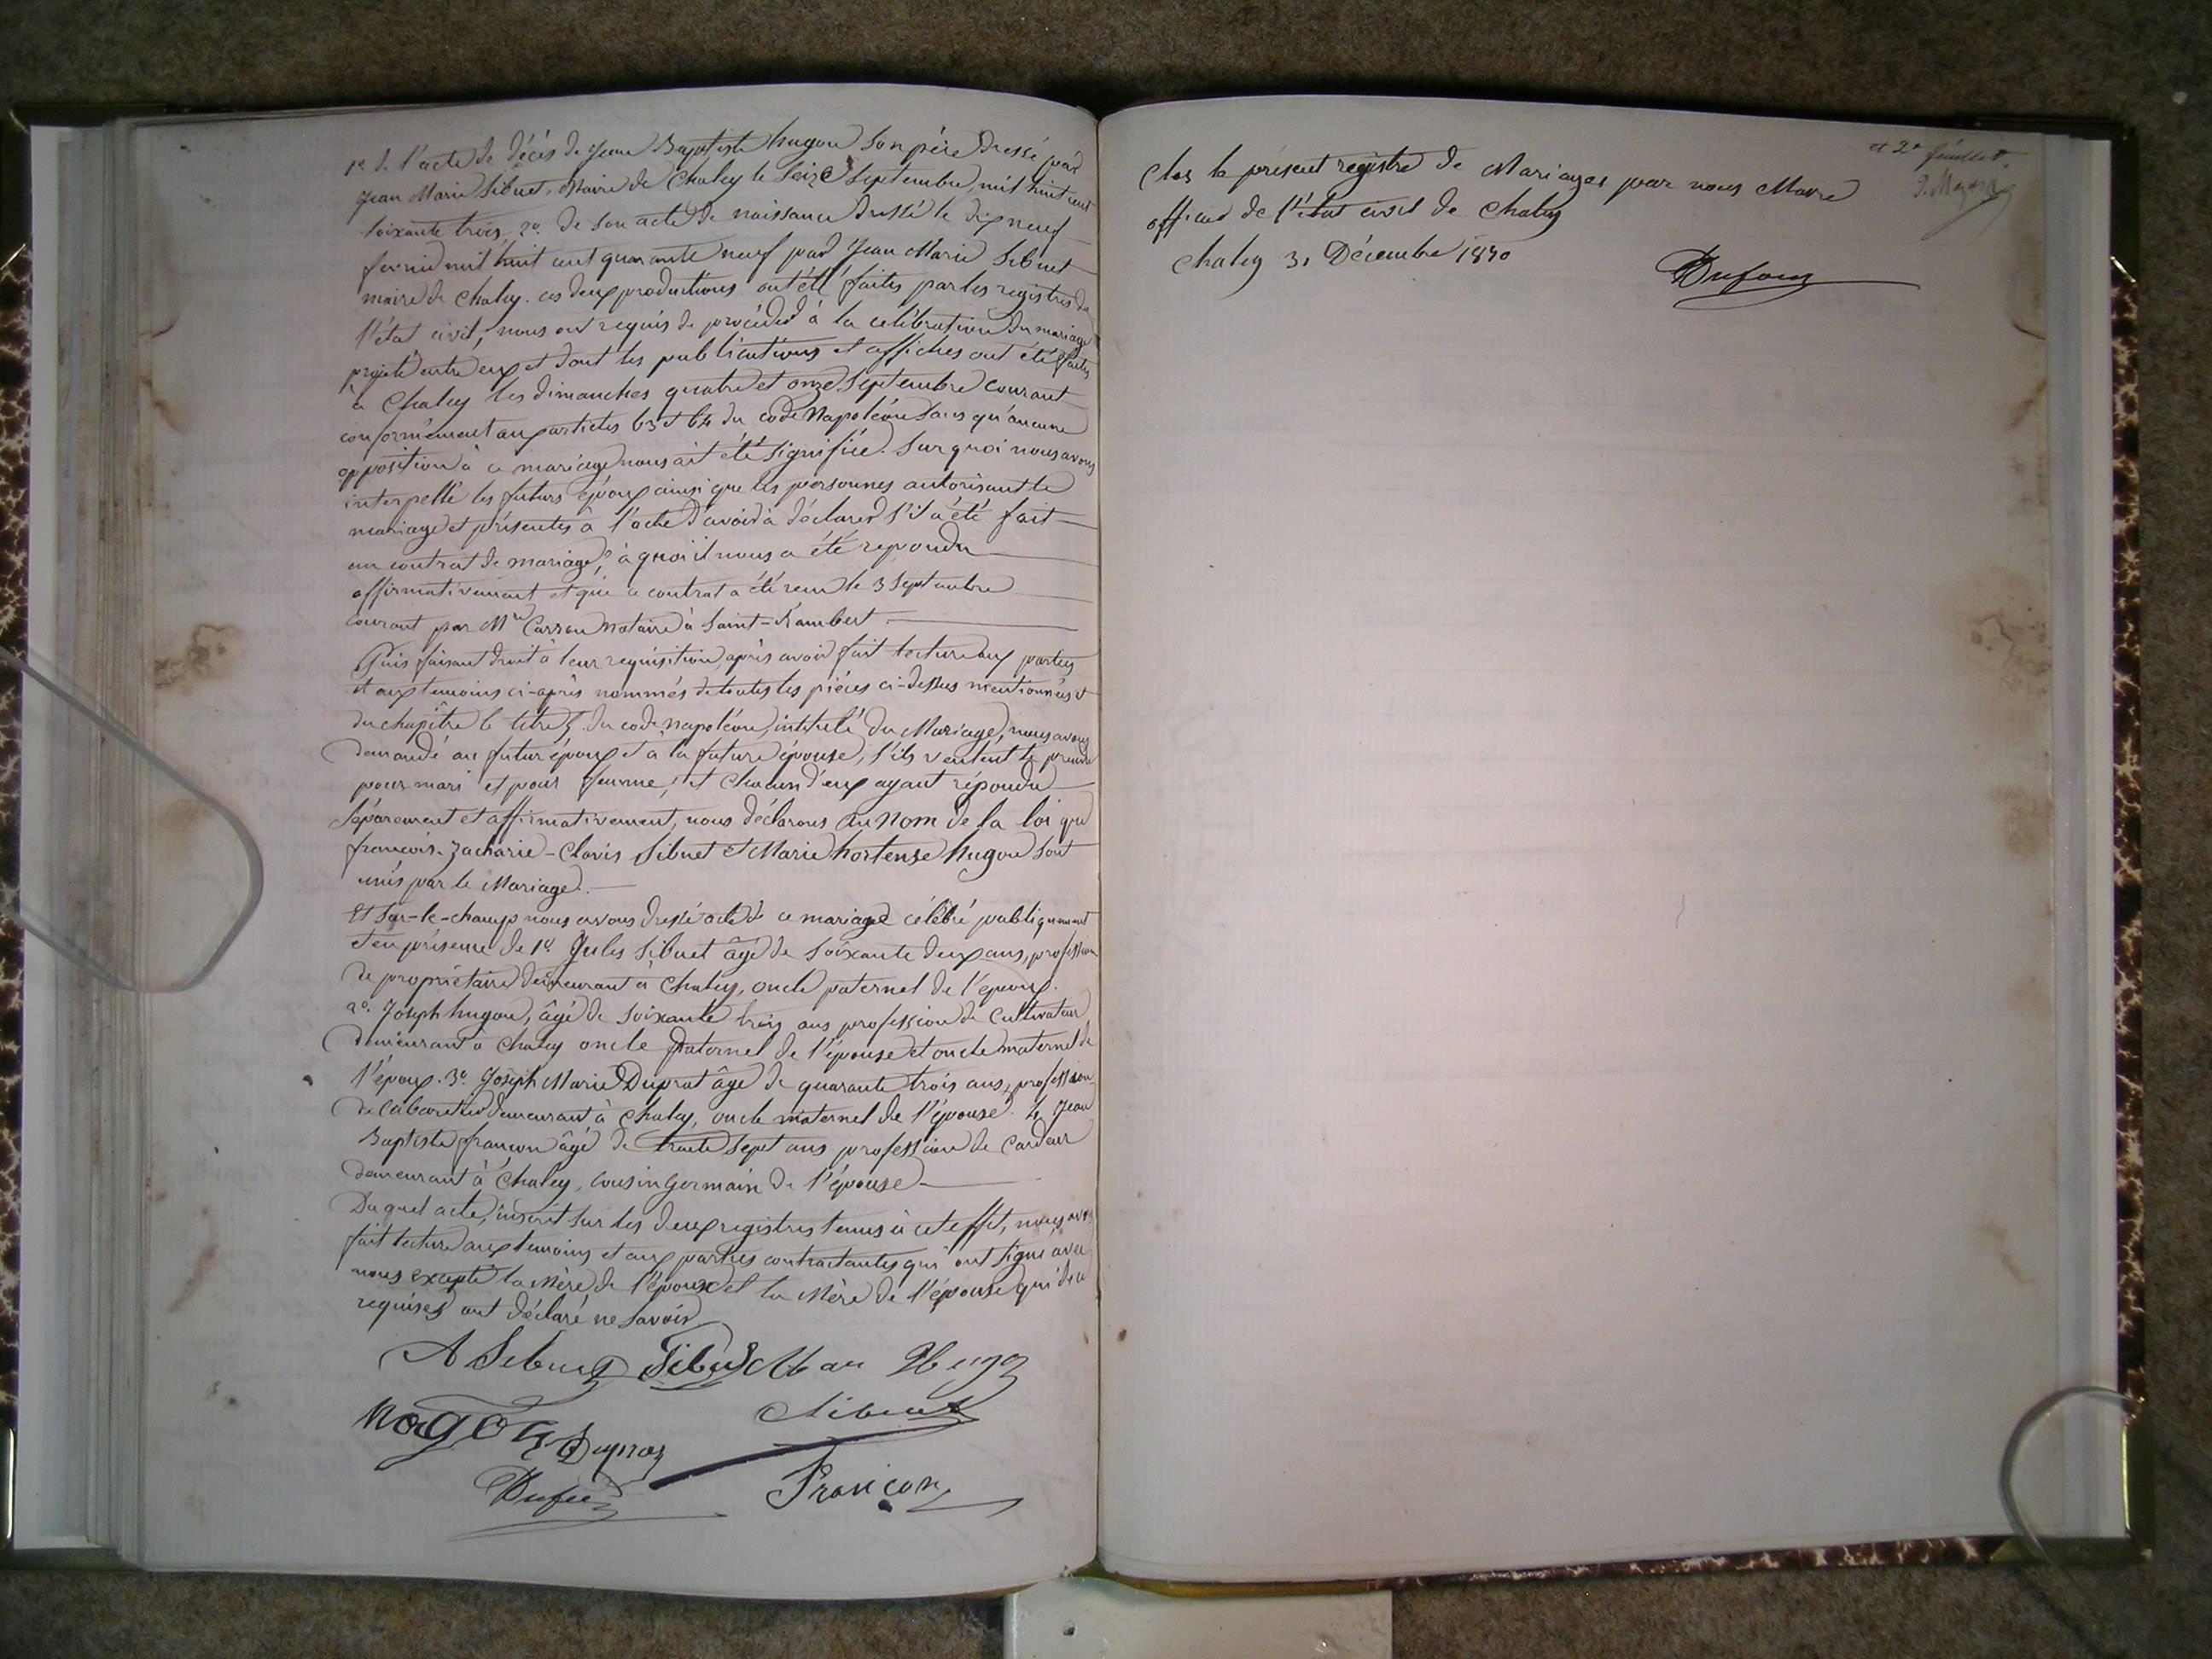 1º de l'acte de décès de Jean Baptiste hugon son père dressé par
Jean Marie Sibuet, Maire de Chaley le Seize Septembre, mil huit cent
soixante trois, 2º. De son acte de naissance dressé le dix neuf
fevrier mil huit cent quarante neuf par Jean Marie Sibuet
maire de Chaley. ces deux productions ont été faites par les registres de
l'état civil, nous ont requis de procéder à la celébration du mariage
projeté entre eux et dont les publications et affiches ont été faites
à Chaley les dimanches quatre et onze Septembre courant
conformément aux articles 63 et 64 du code Napoléon sans qu'aucune
opposition à ce mariage nous ait été signifiée. Sur quoi nous avons
interpellé les futurs époux ainsi que les personnes autorisant le
mariage et présentes à l'acte d'avoir à déclarer s'il a été fait
un contrat de mariage, à quoi il nous a été repondu
affirmativement et que ce contrat a été reçu le 3 Septembre
courant par Me Carron Notaire à Saint-Rambert.
Puis faisant droit à leur requisition, après avoir fait lecture aux parties
et aux temoins ci-après nommés de toutes les pièces ci-dessus mentionnées et
du chapître 6 titre 5 du code Napoléon, intitulé du Mariage, nous avons
demandé au futur époux et à la future épouse, s'ils veulent se prendre
pour mari et pour femme, et chacun d'eux ayant répondu
séparement et affirmativement, nous déclarons au Nom de la loi que
françois-Zacharie-Clovis Sibuet et Marie hortense hugon sont
unis par le Mariage.
Et sur-le-champ nous avons dressé acte de ce mariage célébré publiquement
et en présence de 1º Jules Sibuet âgé de soixante deux ans, profession
de propriétaire demeurant à Chaley, oncle paternel de l'époux.
2º. Joseph hugon, âgé de soixante trois ans profession de Cultivateur
demeurant à Chaley oncle paternel de l'épouse et oncle maternel de
l'époux. 3º. Joseph Marie Duprat âgé de quarante trois ans, profession
de Cabaretier demeurant à Chaley, oncle maternel de l'épouse. 4 Jean
Baptiste françon âgé de trente sept ans profession de Cardeur
demeurant à Chaley, cousin germain de l'épouse
Duquel acte, inscrit sur les deux registres tenus à cet effet, nous avons
fait lecture aux temoins et aux parties contractantes qui ont signé avec
nous excepté la Mère de l'époux et la Mère de l'épouse qui de ce
requises ont déclaré ne savoir
Sibuet
Sibuet
Françon
et 2e feuillet.
Clos le présent registre de Mariages par nous Maire
officier de l'état civil de Chaley
Chaley 31 Décembre 1870
Dufour